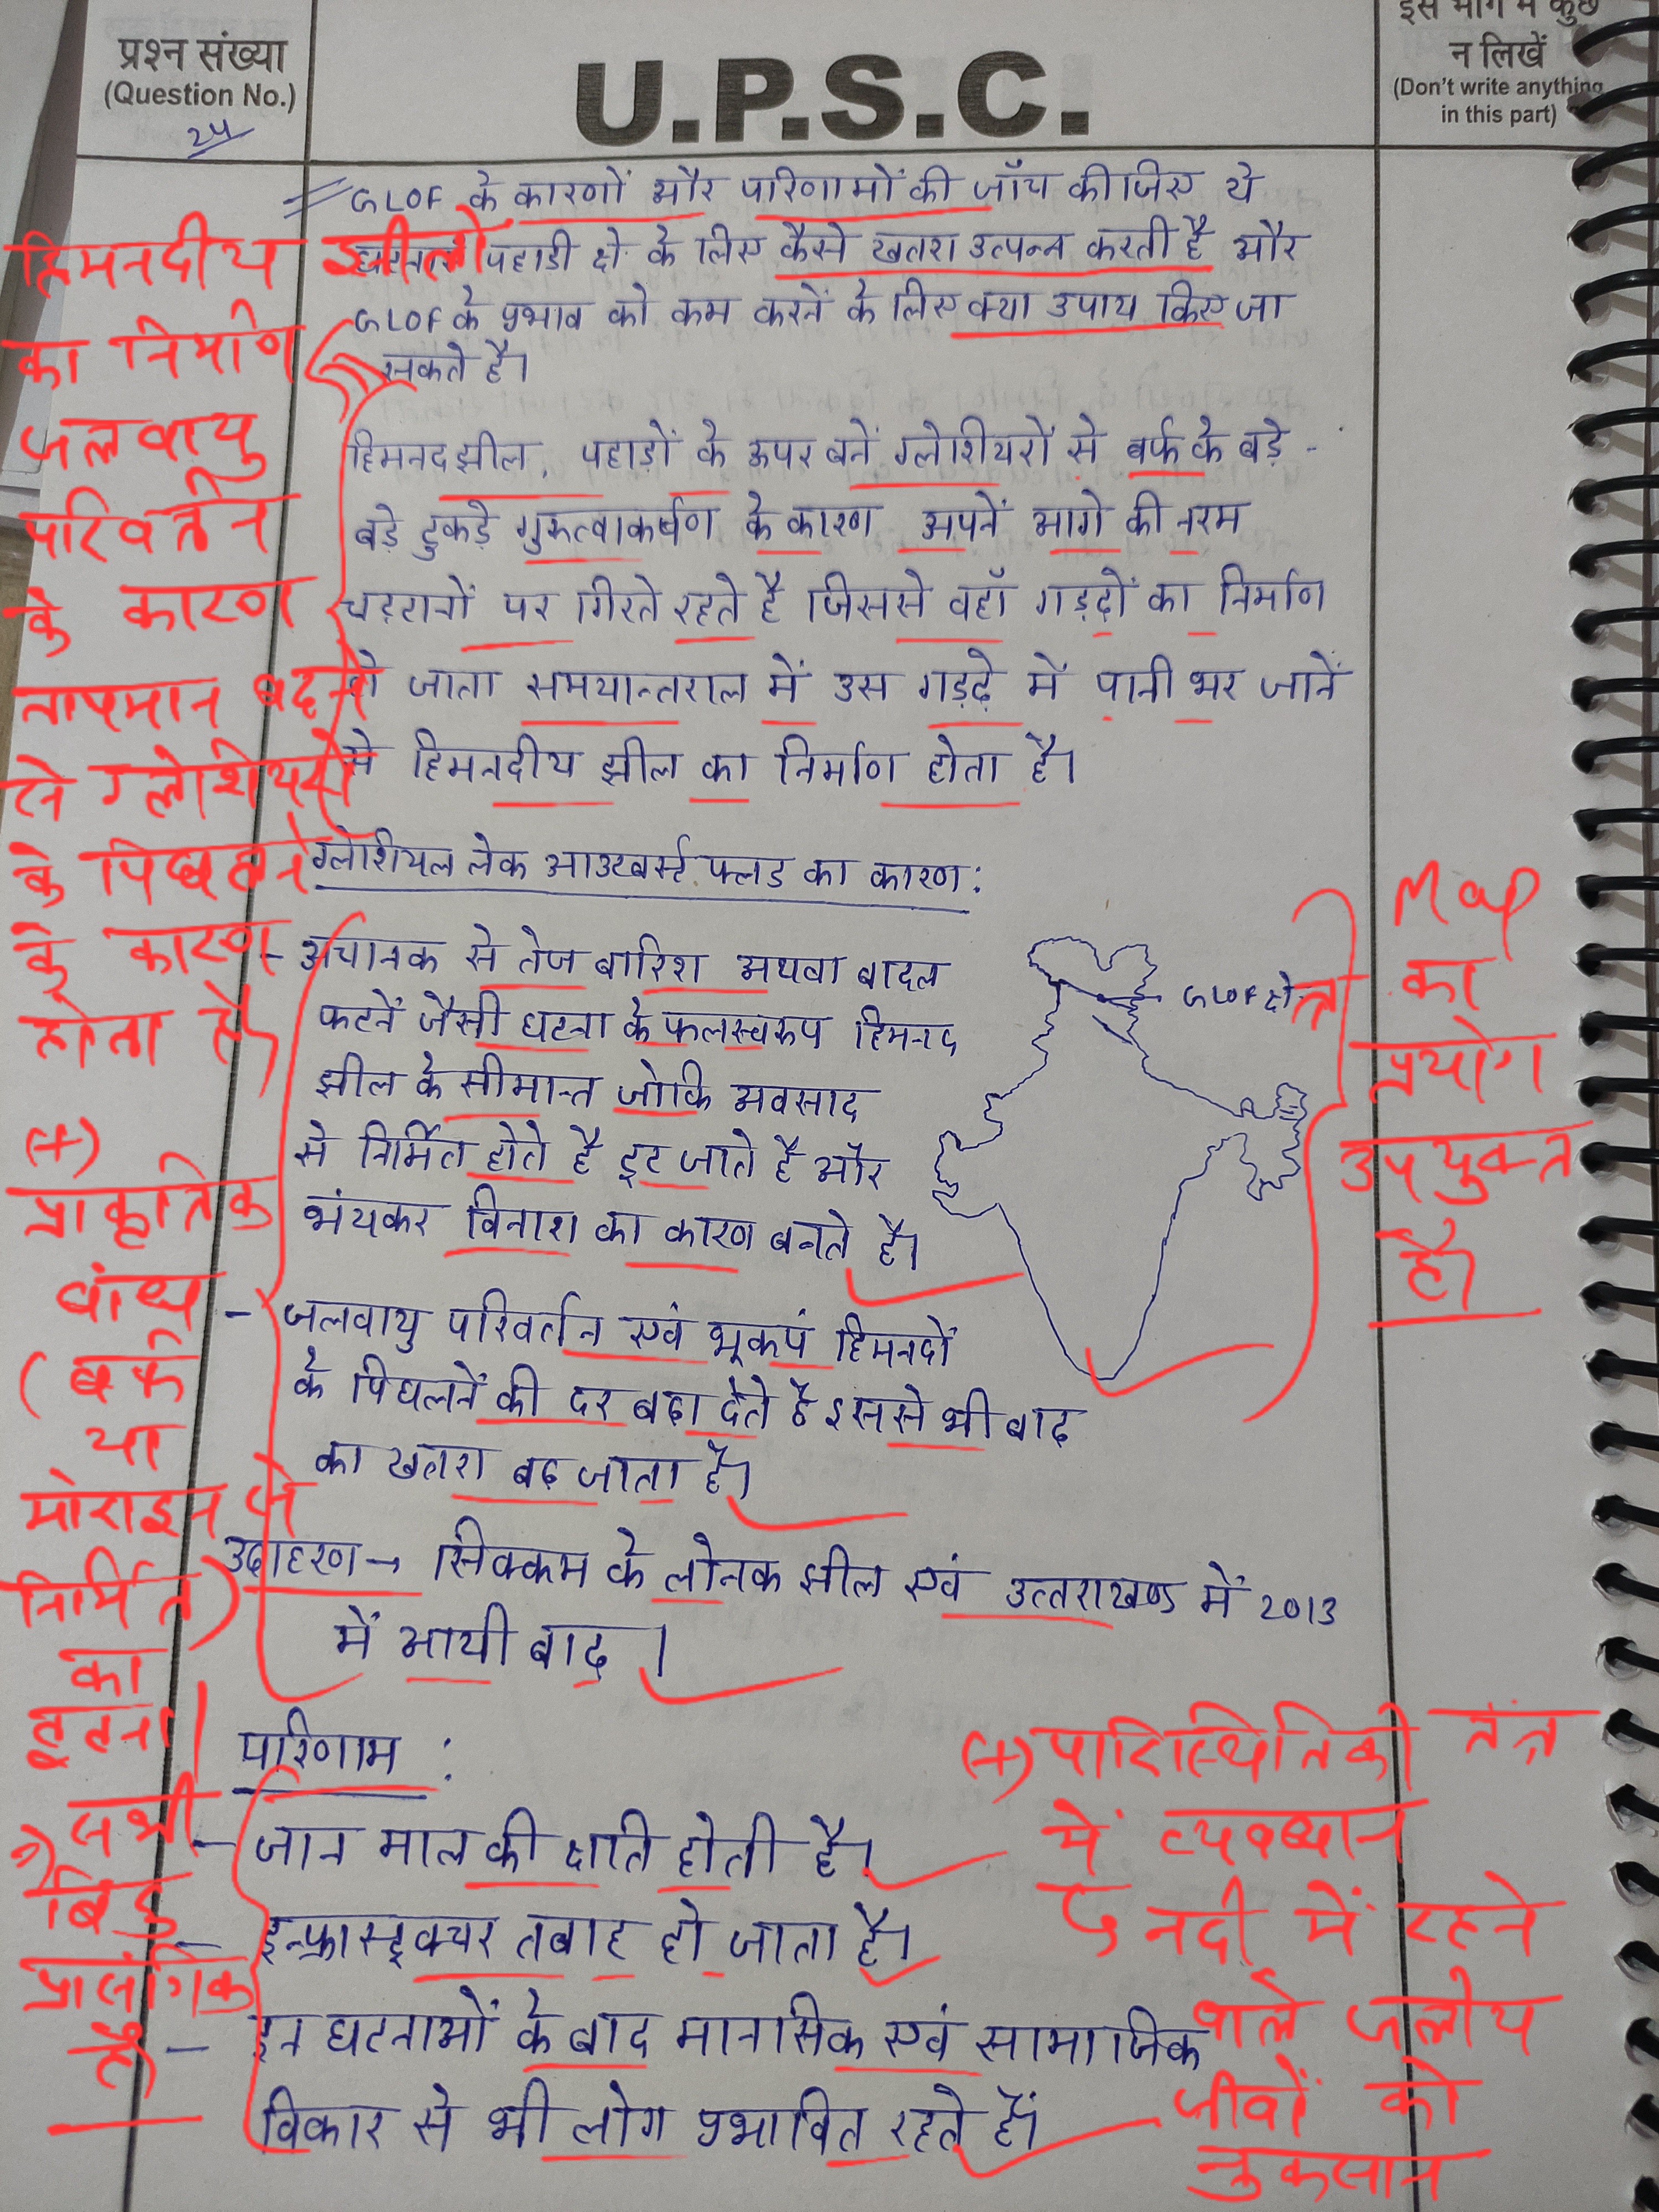 प्रश्न संख्या
(Question No.)
24
U.P.S.C.
इस भाग में कुछ
न लिखें
(Don't write anything
in this part)
GLOF के कारणों और परिणामों की जाँच कीजिए ये
पहाडी क्षे॰ के लिए कैसे खतरा उत्पन्न करती है और
GLOF के प्रभाव को कम करनें के लिए क्या उपाय किए जा
सकते है।
हिमनदझील, पहाड़ों के ऊपर बनें ग्लेशीयरों से बर्फ के बड़े -
बड़े टुकड़े गुरुत्वाकर्षण के कारण अपनें आगे की नरम
चट्टानों पर गिरते रहते है जिससे वहाँ गड़ढ़ों का निर्माण
हो जाता समयान्तराल में उस गड़ढ़े में पानी भर जानें
से हिमनदीय झील का निर्माण होता है।
ग्लेशियल लेक आउटबर्स्ट फ्लड का कारण :
- अचानक से तेज बारिश अथवा बादल
फटनें जैसी घटना के फलस्वरूप हिमनद
झील के सीमान्त जोकि अवसाद
से निर्मित होते है टूट जाते है और
भंयकर विनाश का कारण बनते है।
GLOF क्षेत्र
- जलवायु परिवर्तन एवं भूकपं हिमनदों
के पिघलनें की दर बढ़ा देते है इससे भी बाढ़
का खतरा बढ़ जाता है।
उदाहरण → सिक्कम के लोनक झील एवं उत्तराखण्ड में 2013
में आयी बाढ़ ।
परिणाम :
- जान माल की क्षति होती है।
- इन्फ्रास्ट्रक्चर तबाह हो जाता है।
- इन घटनाओं के बाद मानसिक एवं सामाजिक
विकार से भी लोग प्रभावित रहते हैं।
हिमनदीय झीलों
का निर्माण
जलवायु
परिवर्तन
के कारण
तापमान बढ़ने
से ग्लेशियरों
के पिघलने
के कारण
होता है।
(+)
प्राकृतिक
बांध
(बर्फ
या
मोराइन से
निर्मित)
का
टूटना।
सभी
बिंदु
प्रासंगिक
है
Map
का
प्रयोग
उपयुक्त
है।
(+) पारिस्थितिकी तंत्र
में व्यवधान
↳ नदी में रहने
वाले जलीय
जीवों को
नुकसान